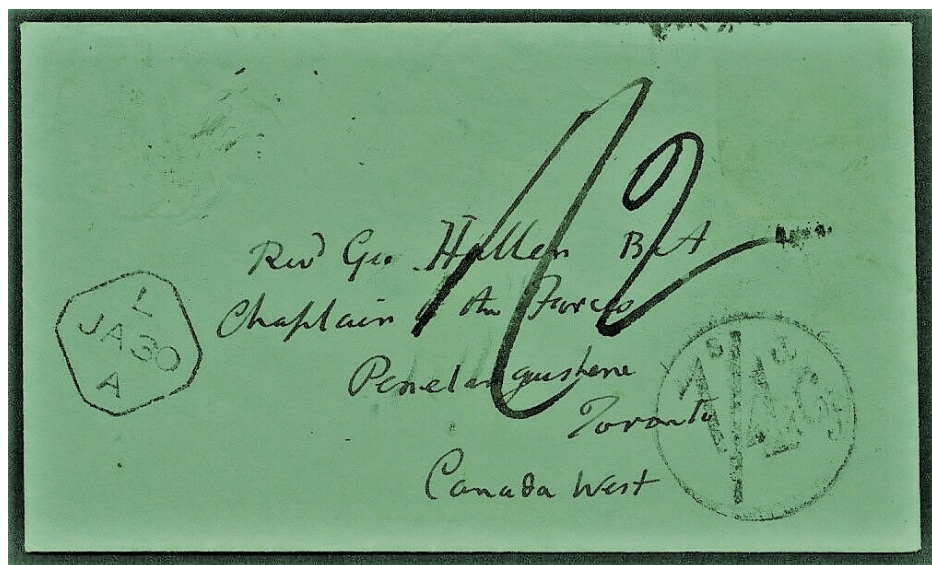 Revd Geo Hallen B A
Chaplain to the Forces
Penetanguishene
Toronto
Canada West
L
JA 30
A
1/2
s d
1/4 Cy